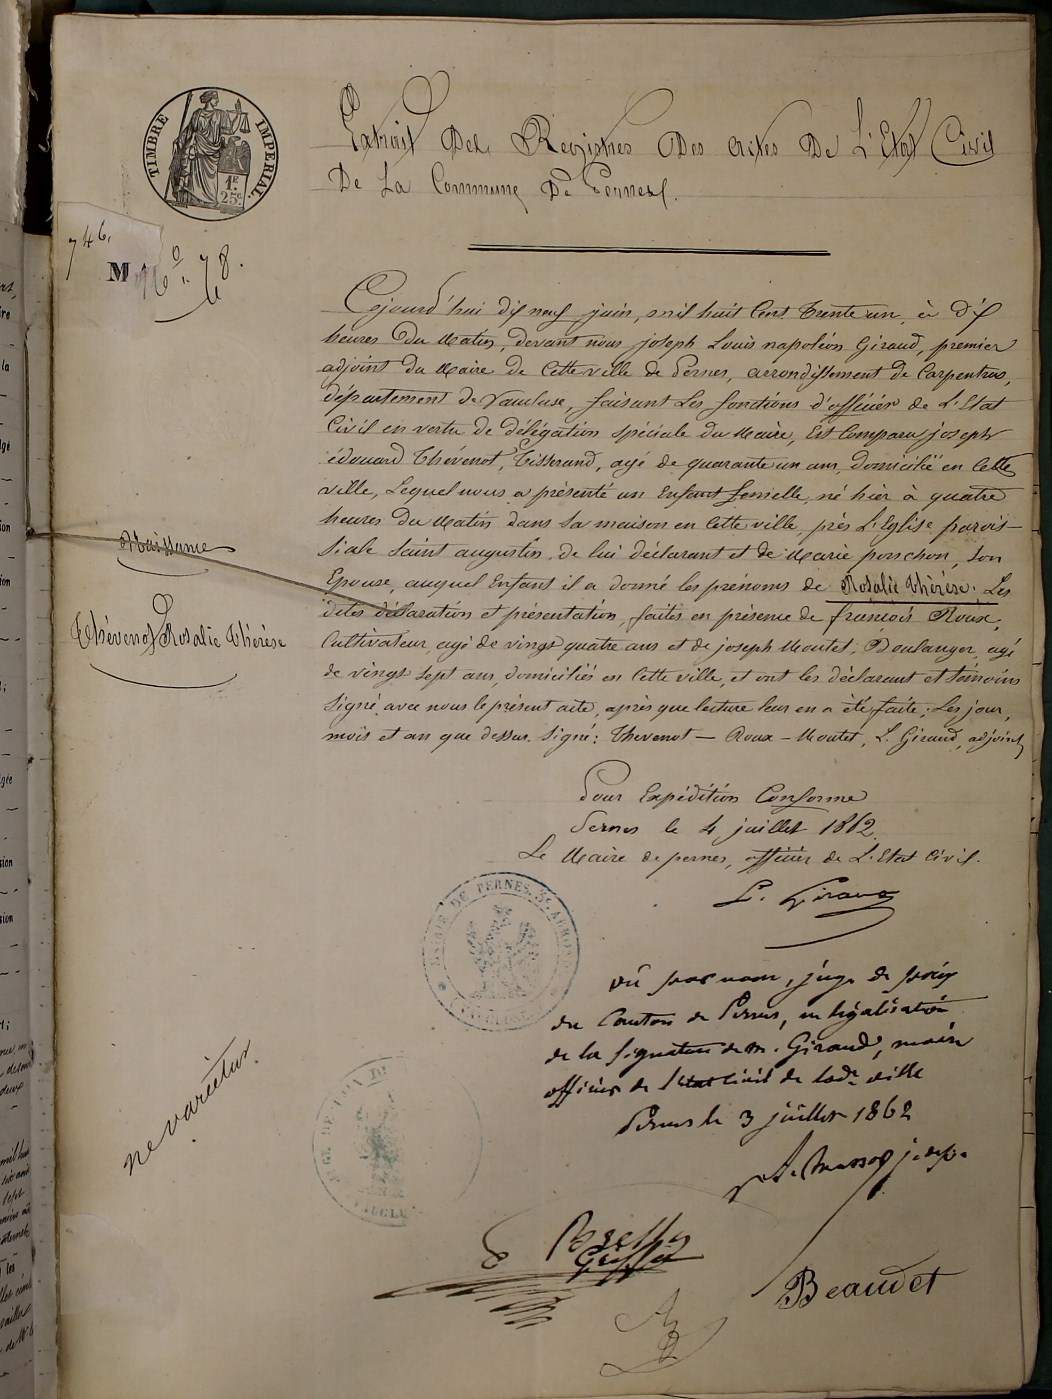 TIMBRE IMPERIAL.
1F. 25c.
Extrait Des Registres Des actes De L'Etat Civil
De La Commune De Pernes.
746.
M
N.° 78.
Cejourd'hui dix neuf juin, mil huit Cent Trente un, à dix
heures Du Matin, devant nous joseph Louis napoléon Giraud, premier
adjoint du Maire de Cette ville de Pernes, arrondissement de Carpentras,
département de Vaucluse, faisant Les fonctions d'officier de L'Etat
Civil en vertu de délégation spéciale du Maire, Est Comparu joseph
édouard Thévenot, Tisserand, agé de quarante un ans, domicilié en Cette
ville, Lequel nous a présenté un Enfant femelle, né hier à quatre
heures Du Matin dans sa maison en Cette ville, près L'Eglise parois-
siale Saint augustin, de lui déclarant et de Marie porschon, son
Epouse, auquel Enfant il a donné les prénoms de Rosalie Thérèse; Les
dites déclaration et présentation, faites en présence de francois Roux,
Cultivateur, agé de vingt quatre ans et de joseph Moutet, Boulanger, agé
de vingt sept ans, domiciliés en Cette ville, et ont les déclarant et témoins
Signé avec nous le présent acte, après que lecture leur en a été faite; Les jour,
mois et an que dessus. Signé: Thevenot — Roux — Moutet, L. Giraud, adjoint
Naissance
Thévenot Rosalie Thérèse
Pour Expédition Conforme
Pernes le 4 juillet 1862.
Le Maire de pernes, officier de L'Etat Civil.
L. Giraud
MAIRIE DE PERNES
VAUCLUSE
vû par nous, juge de paix
du Canton de Pernes, en légalisation
de la signature de m. Giraud, maire
officier de l'Etat Civil de lad.e ville
Pernes le 3 juillet 1862
j. de p.
ne varietur.
VAUCLU
Greffier
Beaudet